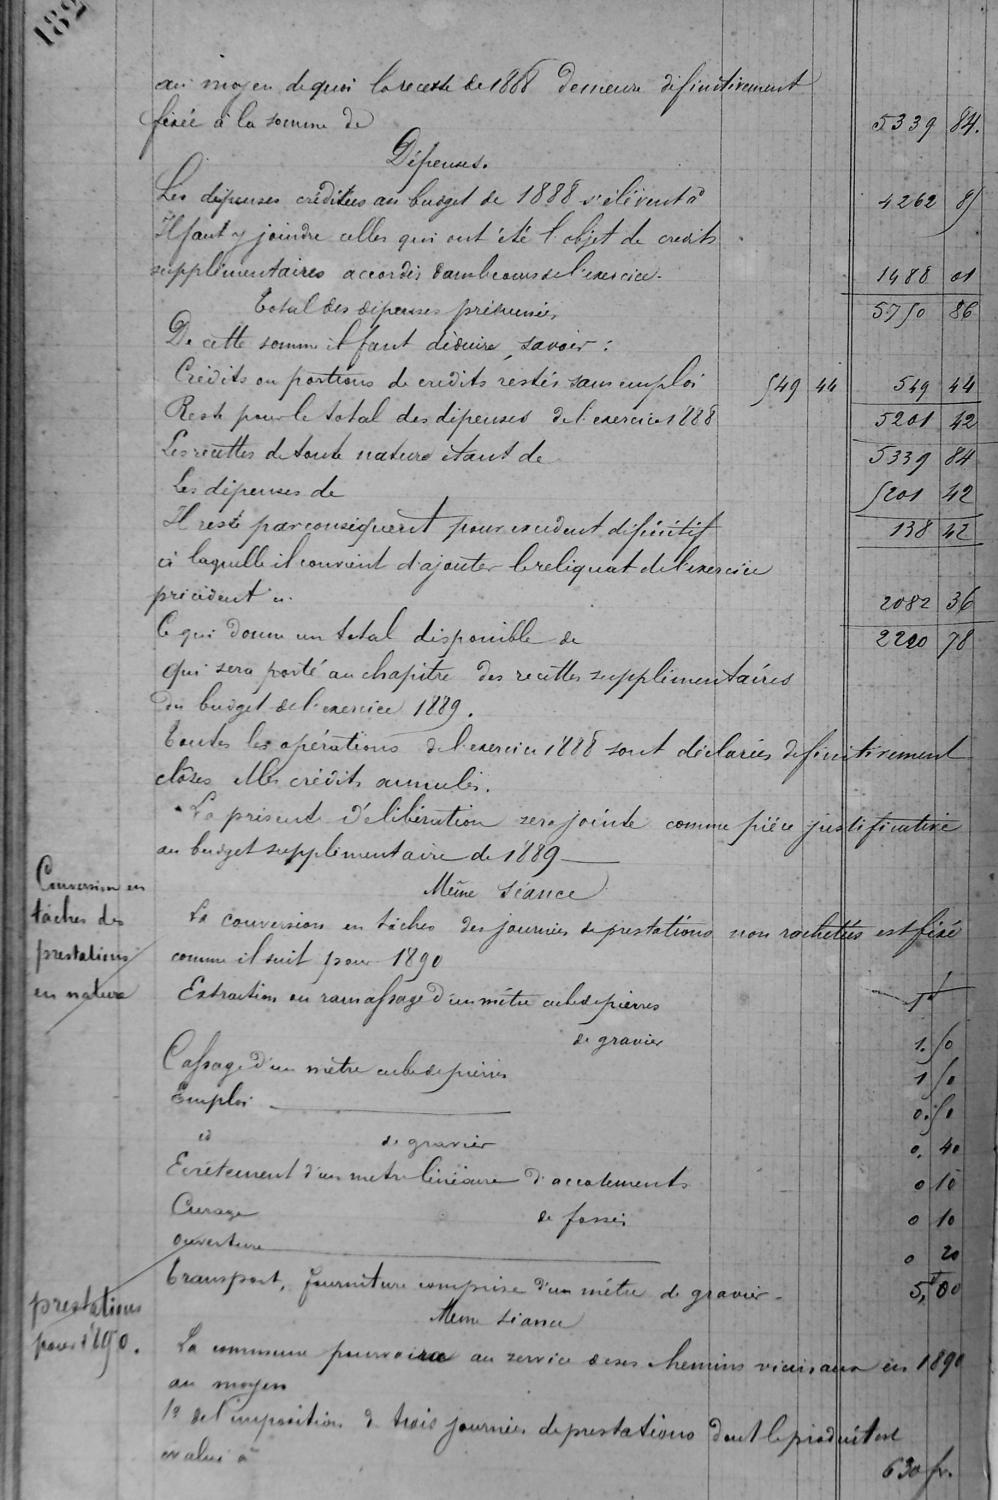 182
au moyen de quoi la recette de 1888 demeure définitivement
fixée à la somme de 5339 84.
Dépenses.
Les dépenses créditées au budget de 1888 s'élèvent à 4262 85
Il faut y joindre celles qui ont été l'objet de crédits
supplémentaires accordés dans le cours de l'exercice. 1488 01
Total des dépenses présumées, 5750 86
De cette somme il faut déduire, savoir :
Crédits ou portions de crédits restés sans emploi 549 44 549 44
Reste pour le total des dépenses de l'exercice 1888 5201 42
Les recettes de toute nature étant de 5339 84
Les dépenses de 5201 42
Il reste par conséquent pour excédent définitif 138 42
à laquelle il convient d'ajouter le reliquat de l'exercice
précédent 2082 36
Ce qui donne un total disponible de 2220 78
qui sera porté au chapitre des recettes supplémentaires
du budget de l'exercice 1889.
Toutes les opérations de l'exercice 1888 sont déclarées définitivement
closes et les crédits annulés.
La présente délibération sera jointe comme pièce justificative
au budget supplémentaire de 1889
Même séance
Conversion en
tâches des
prestations
en nature
La conversion en tâches des journées de prestations non rachetées est fixé
comme il suit pour 1890
Extraction ou ramassage d'un mètre cube de pierres 1f
de gravier 1.50
Cassage d'un mètre cube de pierres 1 50
Emploi 0.50
id de gravier 0.40
Ecrêtement d'un mètre linéaire d'accotements 0 10
Curage de fossés 0 10
ouverture 0 20
Transport, fourniture comprise d'un mètre de gravier 5,f00
Même séance
prestations
pour 1890.
La commune pourvoira au service de ses chemins vicinaux en 1890
au moyen
1º de l'imposition de trois journées de prestations dont le produit est
évalué à 630 fr.